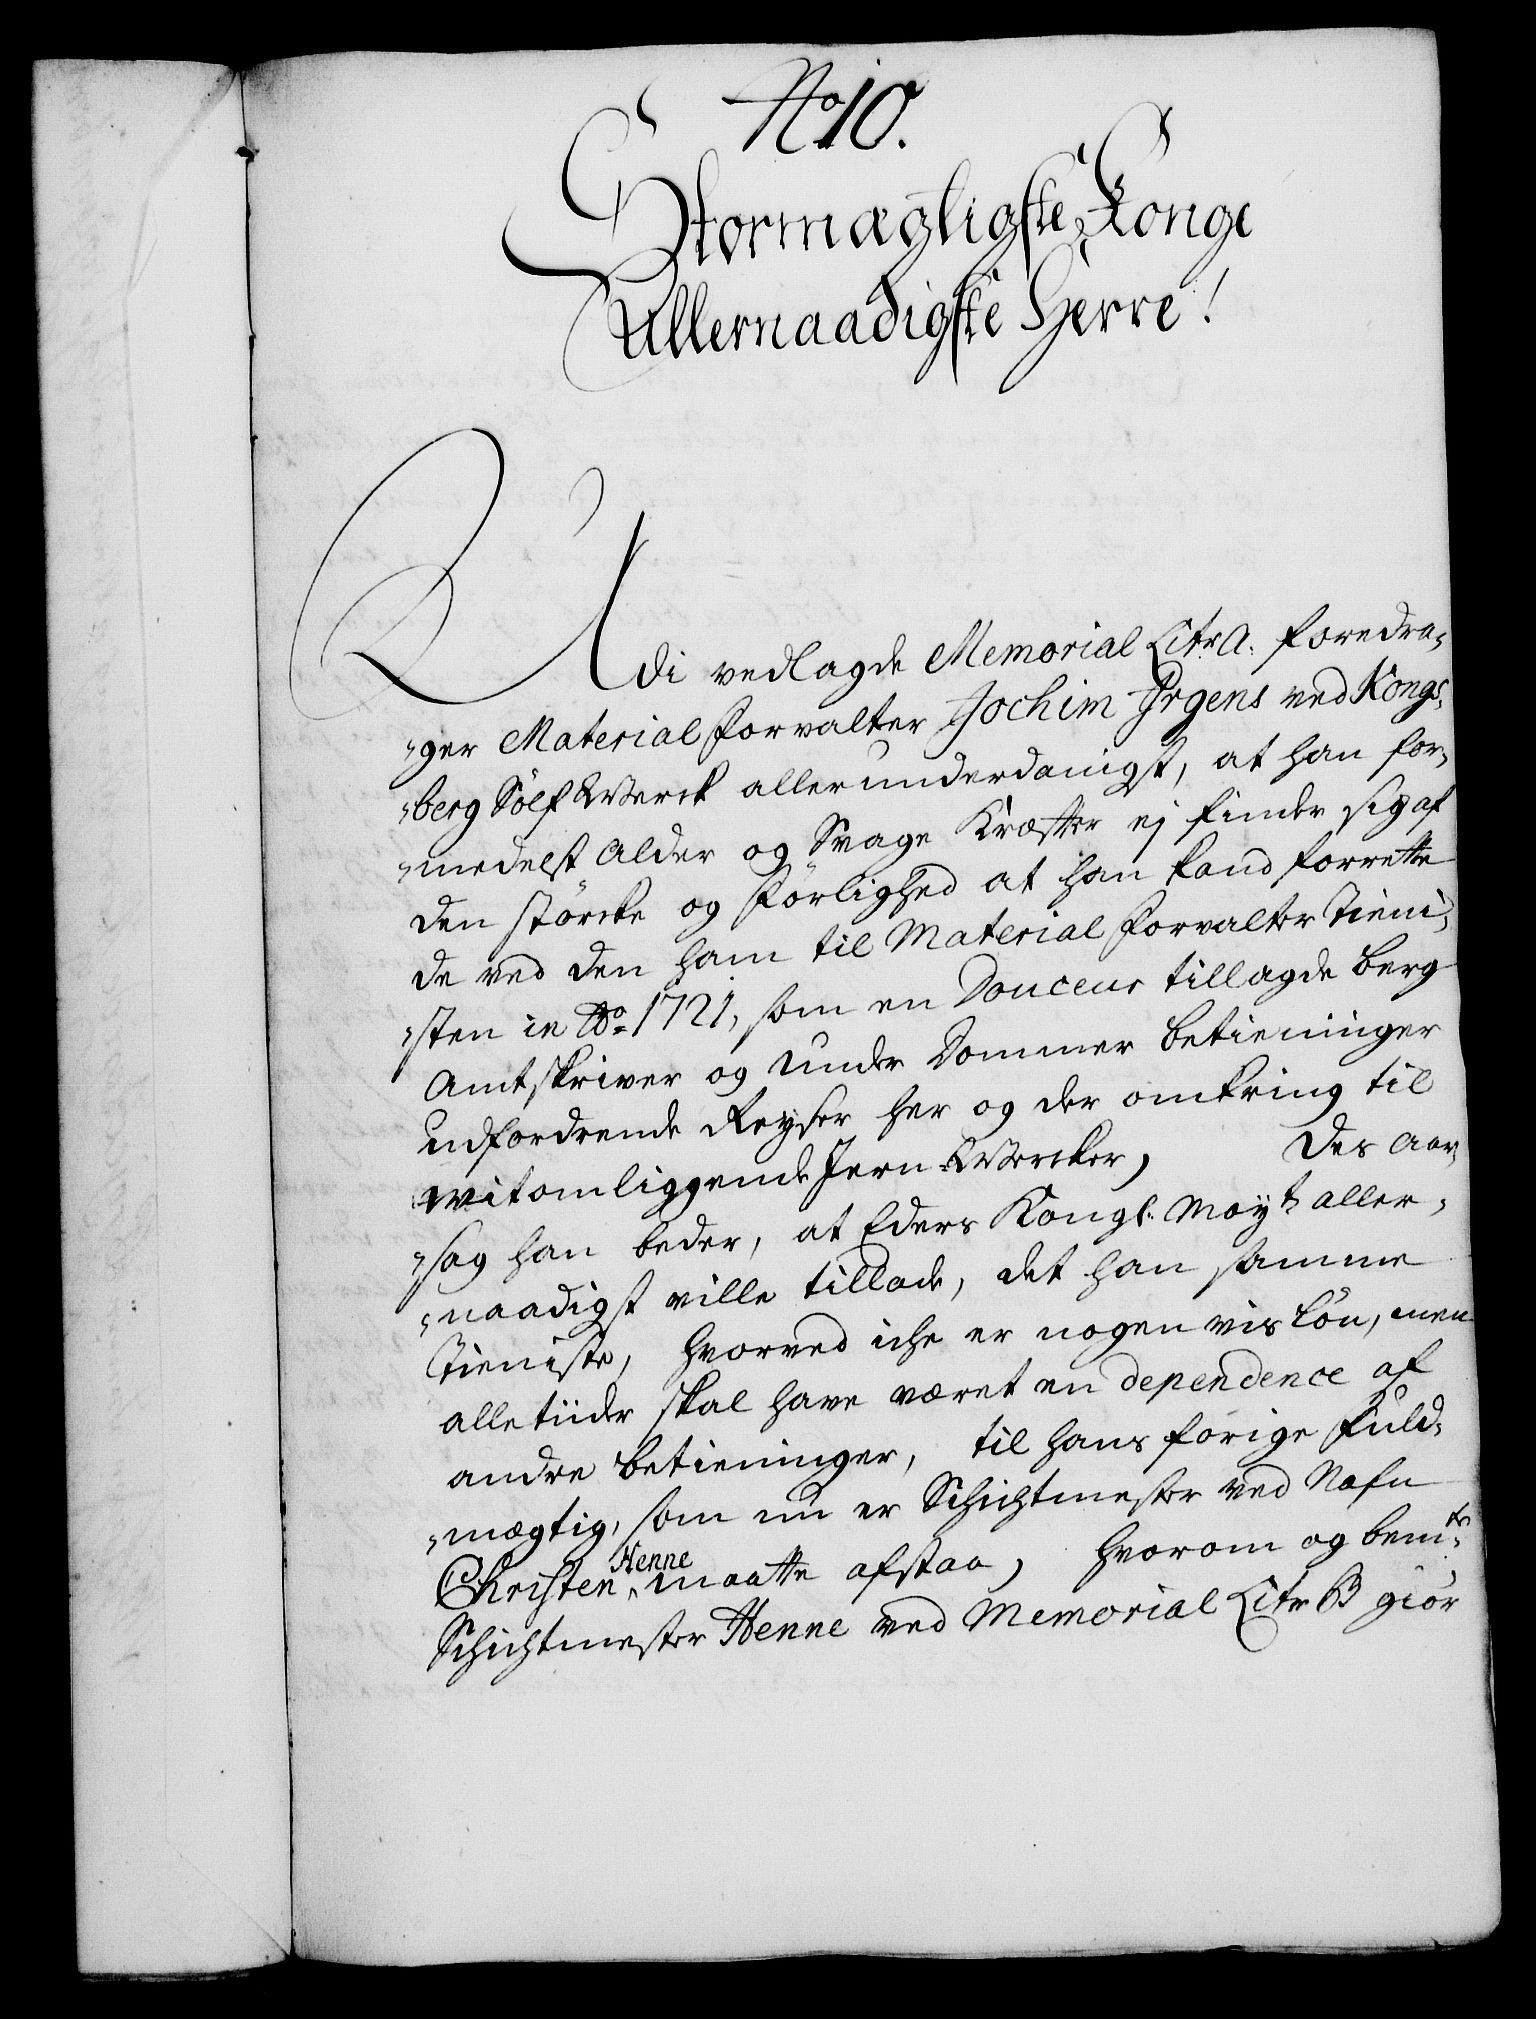 No 10.
Stormægtigste Konge
Allernaadigste Herre!
Udi vedlagde Memorial Litr A. foredra,,
,,ger Material forvalter Jochim Jrgens ved Kongs,,
,,berg Sölf Werck allerunderdanigst, at han for,,
,,medelst Alder og Svage Kræfter ej finder sig af
den störcke og förlighed at han kand forrette
de ved den ham til Material forvalter Tieni,,
,,sten in Ao 1721, som en Douceur tillagde Berg
Amtskriver og Under Dommer betieninger
udfordrende Reyser her og der omkring til
vitomliggende Jern-Wercker, Des Aar,,
,,sag han beder, at Eders Kongl. Mayt aller,,
,,naadigst ville tillade, det han samme
Tieniste, hvorved iche er nogen vis Lön, men
alletiider skal have været en dependence af
andre betieninger, til hans forige Fuld,,
,,mægtig, som nu er Schichtmester ved Nafn
Christen Henne maatte afstaa, hvorom og bemte
Schichtmester Henne ved Memorial Litr B giör